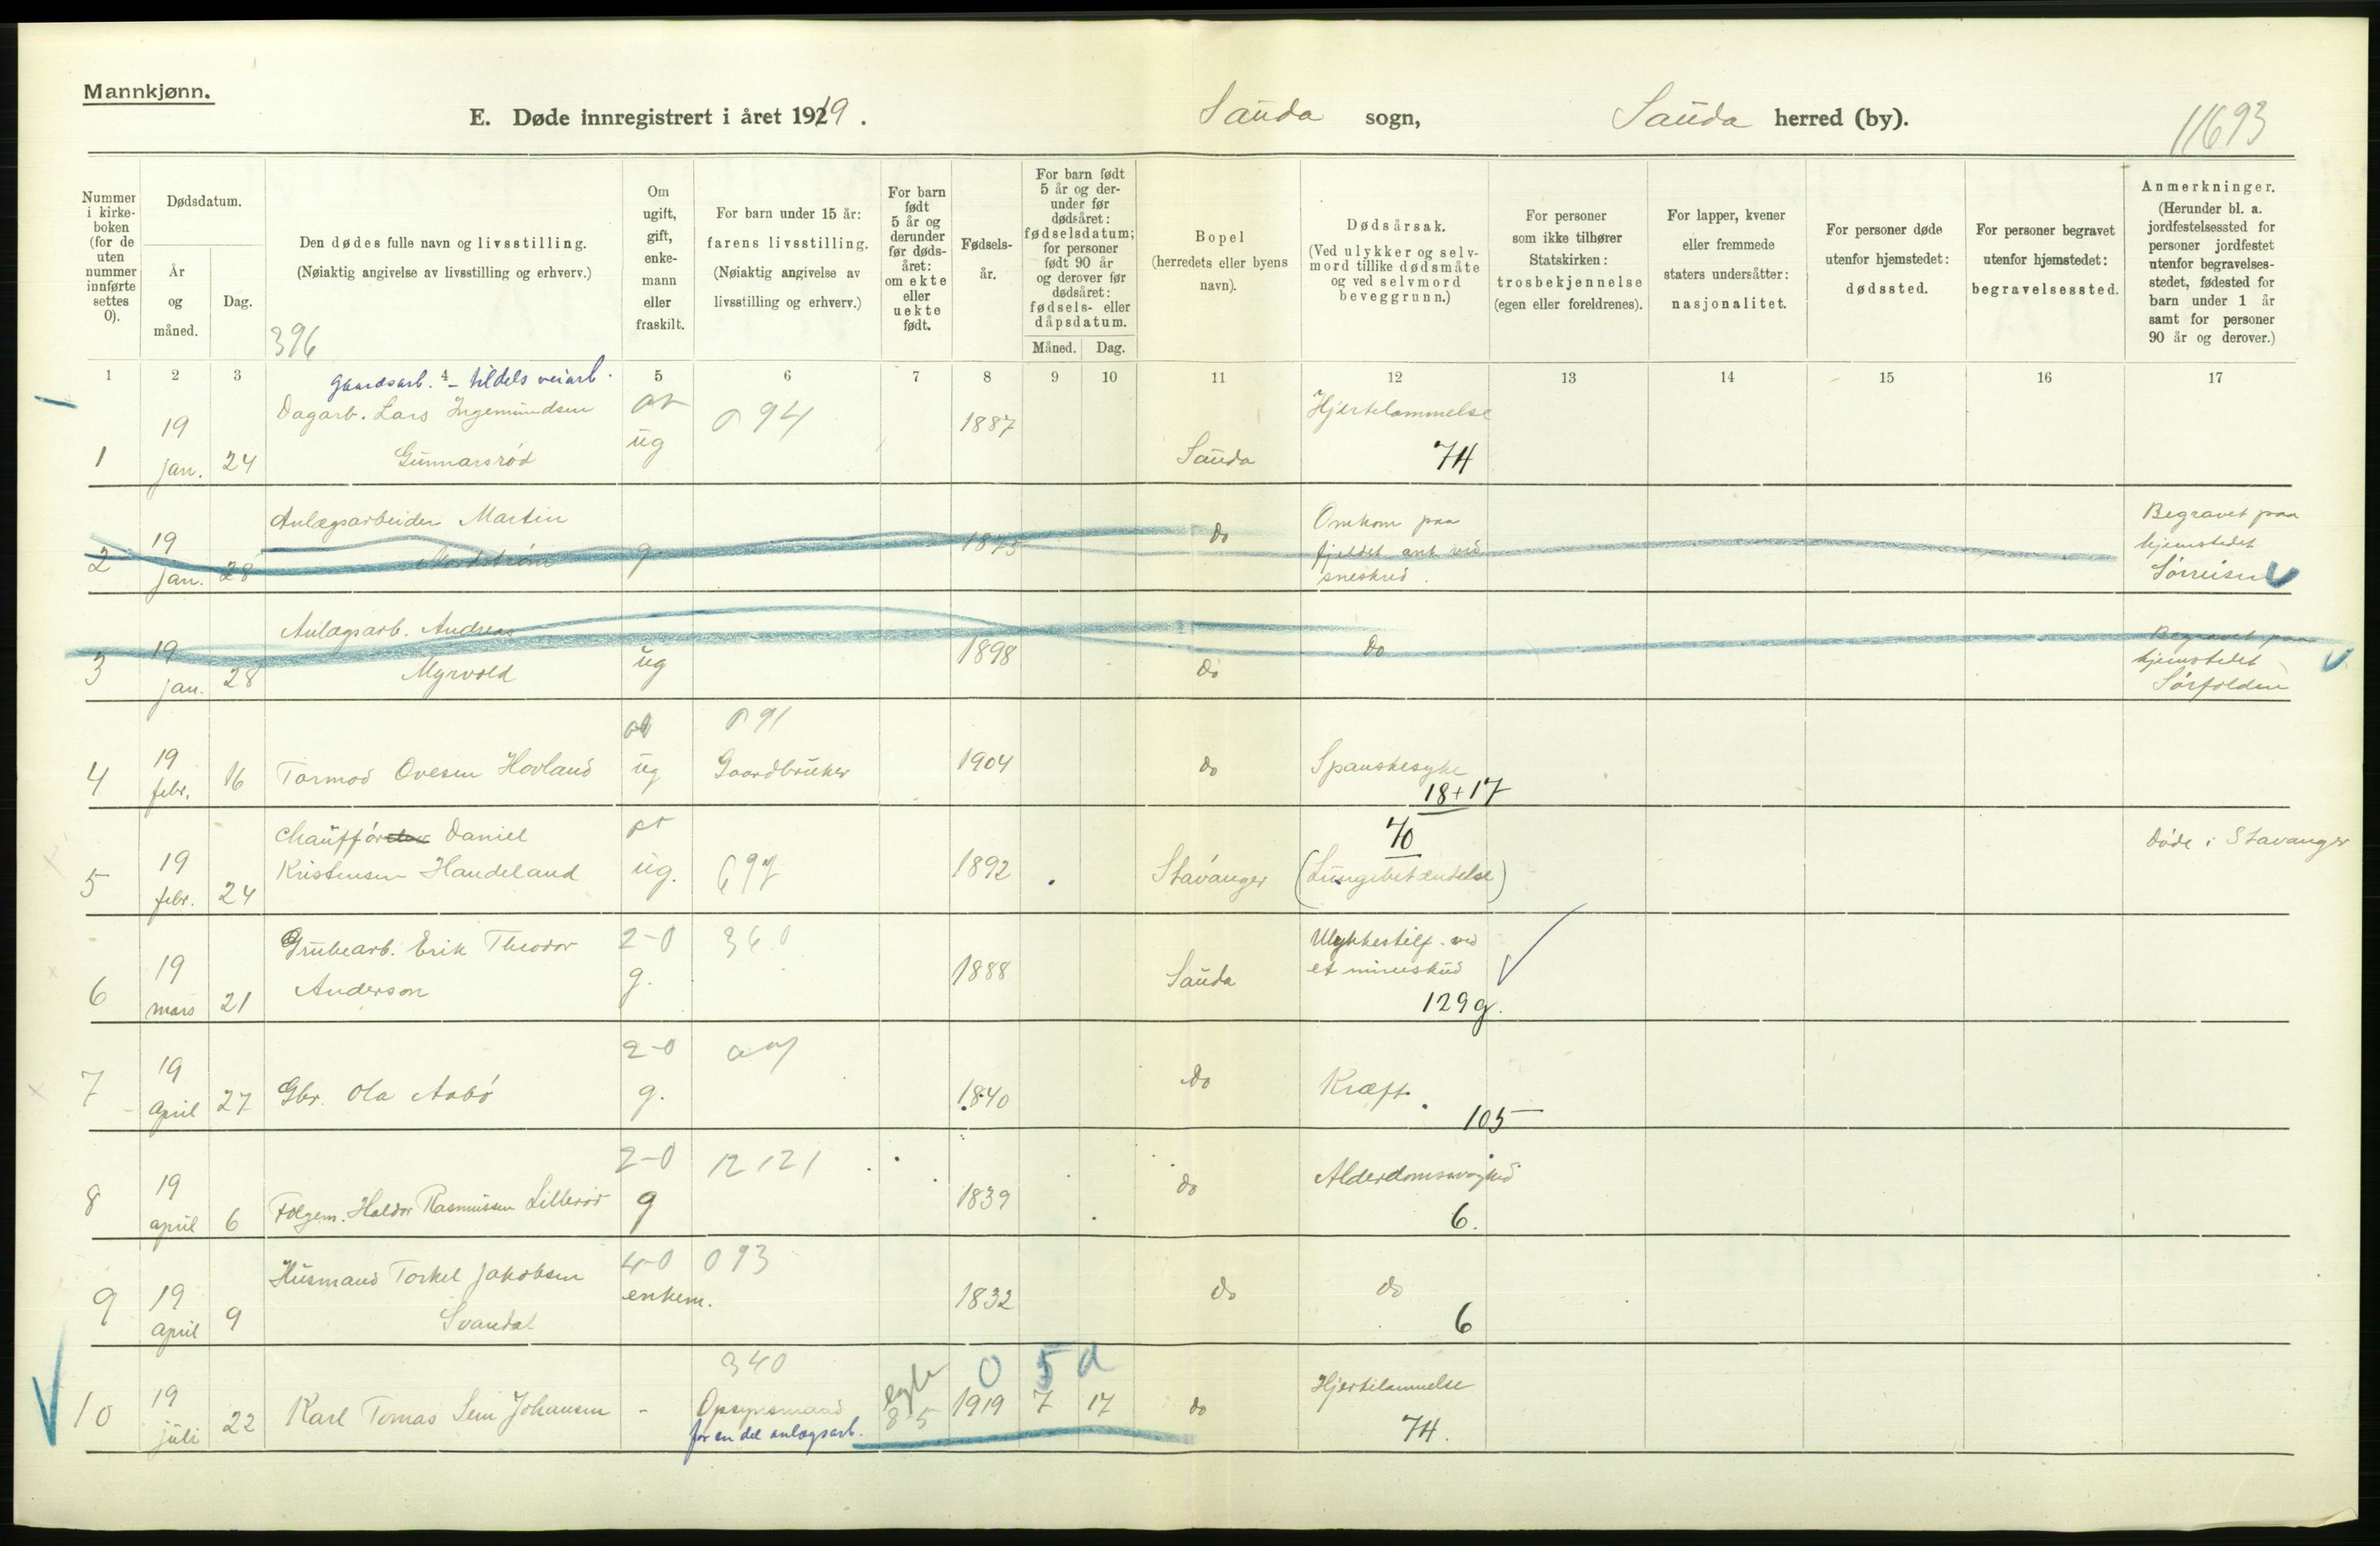 Mannkjønn.
E. Døde innregistrert i året 1919.
Sauda sogn,
Sauda herred (by).
11693
Nummer i kirkeboken (for de uten nummer innførte settes 0).
Dødsdatum.
År og måned.
Dag.
Den dødes fulle navn og livsstilling.
(Nøiaktig angivelse av livsstilling og erhverv.)
396
Om ugift, gift, enkemann eller fraskilt.
For barn under 15 år: farens livsstilling.
(Nøiaktig angivelse av livsstilling og erhverv.)
For barn født 5 år og derunder før dødsåret: om ekte eller uekte født.
Fødselsår.
For barn født 5 år og derunder før dødsåret: fødselsdatum; for personer født 90 år og derover før dødsåret: fødsels- eller dåpsdatum.
Måned. Dag.
Bopel
(herredets eller byens navn).
Dødsårsak.
(Ved ulykker og selvmord tillike dødsmåte og ved selvmord beveggrunn.)
For personer som ikke tilhører Statskirken: trosbekjennelse
(egen eller foreldrenes).
For lapper, kvener eller fremmede staters undersåtter: nasjonalitet.
For personer døde utenfor hjemstedet: dødssted.
For personer begravet utenfor hjemstedet: begravelsessted.
Anmerkninger.
(Herunder bl. a. jordfestelsessted for personer jordfestet utenfor begravelsesstedet, fødested for barn under 1 år samt for personer 90 år og derover.)
1 2 3 4 5 6 7 8 9 10 11 12 13 14 15 16 17
Gaardsarb. - tildels veiarb.
1 19 jan. 24 Dagarb. Lars Ingemundsen Gunnarsrød ug 094 1887 Sauda Hjertelammelse 74
2 19 jan. 28 Anlægsarbeider Martin Nordstrøm g 1875 do Omkom paa fjeldet ant ved sneskred. Begravet paa hjemstedet Sørreisen
3 19 jan. 28 Anlægsarb. Andreas Myrvold ug 1898 do do Begravet paa hjemstedet Sørfolden
4 19 febr. 16 Tormod Ovesen Hovland ug 091 Gaardbruker 1904 do Spanskesyke 18+17
5 19 febr. 24 Chauffør Daniel Kristensen Handeland ug. 697 1892 Stavanger 70 (Lungebetændelse) Døde i Stavanger
6 19 mars 21 Grubearb. Erik Theodor Anderson 2-0 g. 360 1888 Sauda Ulykkestilf. ved et mineskud 129g.
7 19 April 27 Gbr. Ola Aabø 2-0 g. 1840 do Kræft. 105
8 19 april 6 Følgem. Haldor Rasmussen Lillerød 2-0 g 12121 1839 do Alderdomssvaghed 6.
9 19 April 9 Husmand Torkel Jakobsen Svandal 4-0 enkem. 093 1832 do do 6
10 19 juli 22 Karl Tomas Sem Johansen - 340 Opsynsmand for en del anlægsarb. egte 8-5 1919 0 5 d 7 17 do Hjertelammelse 74.